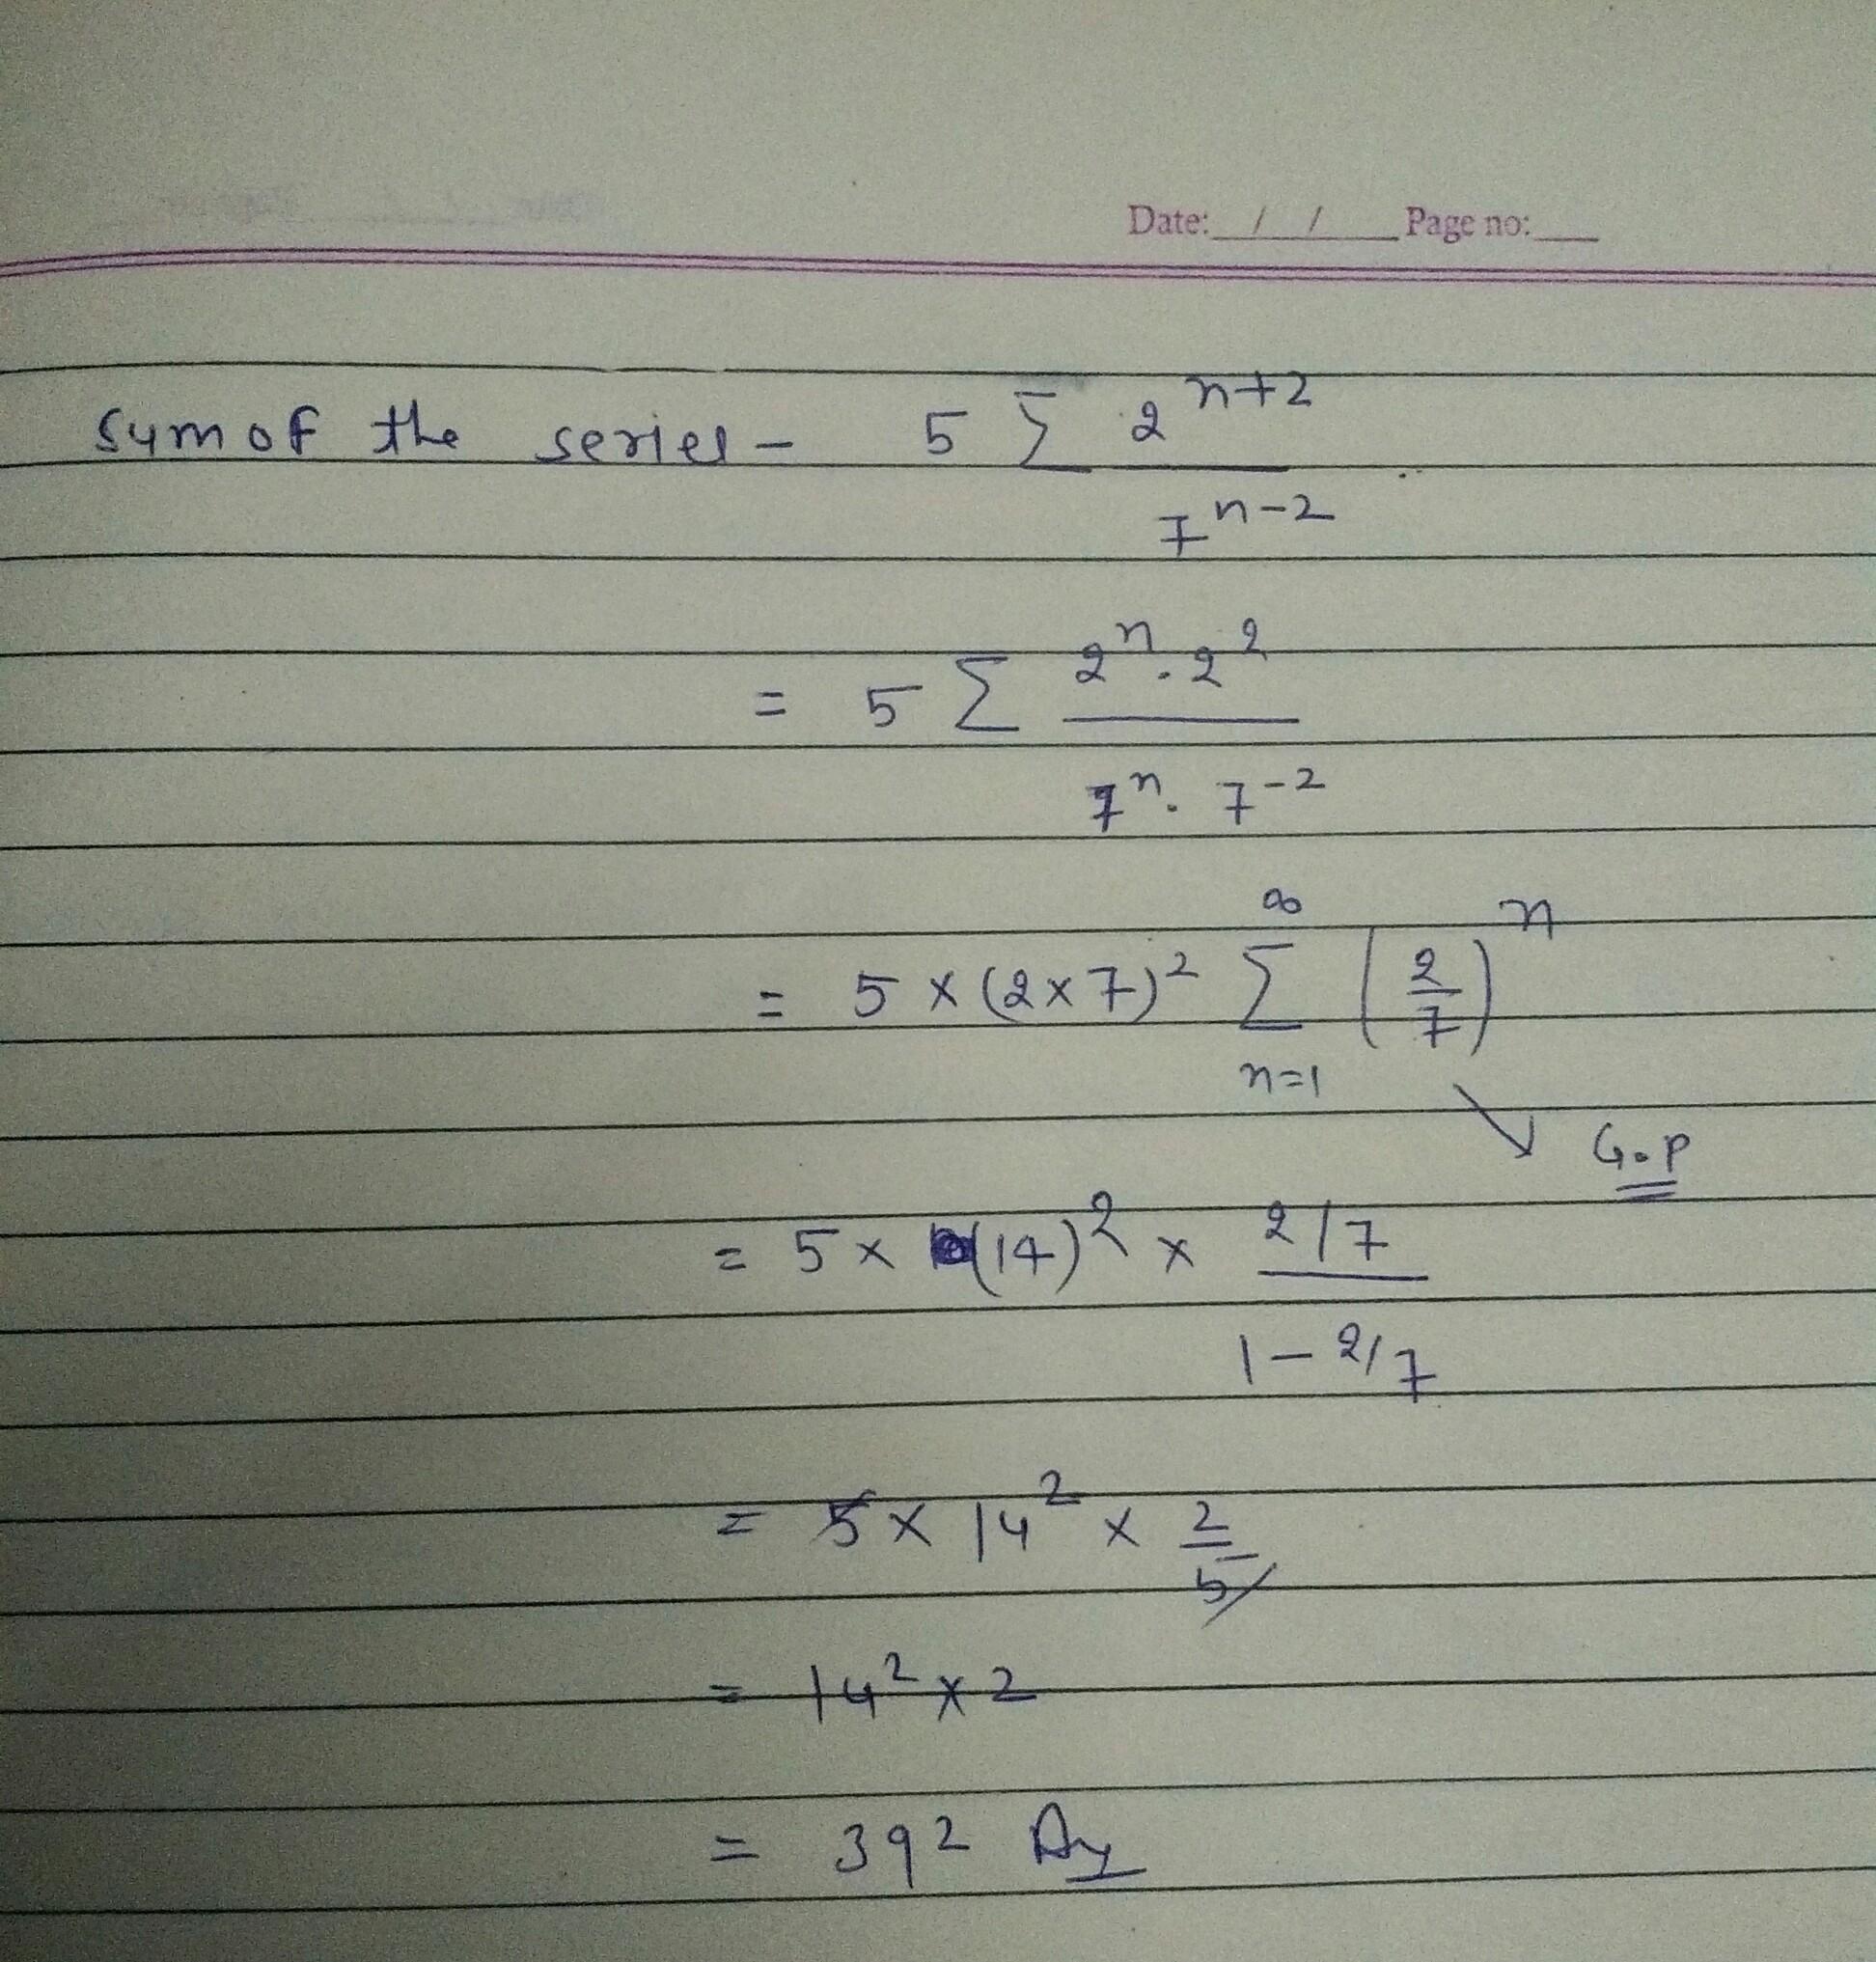 Date: / / Page no:
Sum of the series - 5 Σ 2^(n+2) / 7^(n-2)
= 5 Σ 2^n . 2^2 / 7^n . 7^-2
= 5 × (2×7)^2 Σ_{n=1}^∞ (2/7)^n
G.P
= 5 × (14)^2 × (2/7) / (1 - 2/7)
= 5 × 14^2 × 2/5
= 14^2 × 2
= 392 Ay